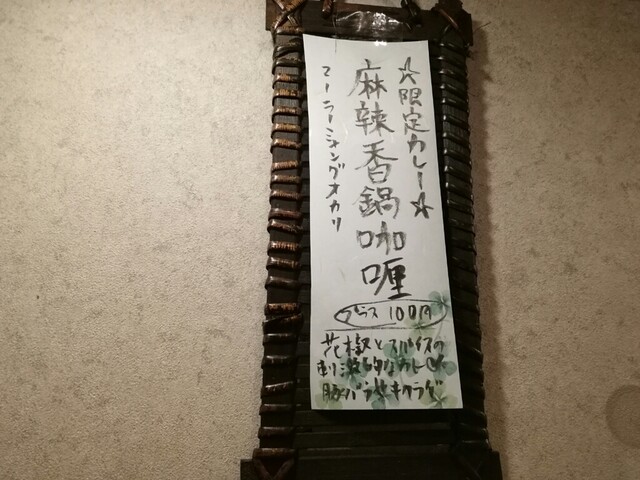 ☆限定カレー☆
麻辣香鍋咖喱
マーラーシャングオカリ
プラス 100円
花椒とスパイスの
刺激的なカレー
豚バラ キクラゲ